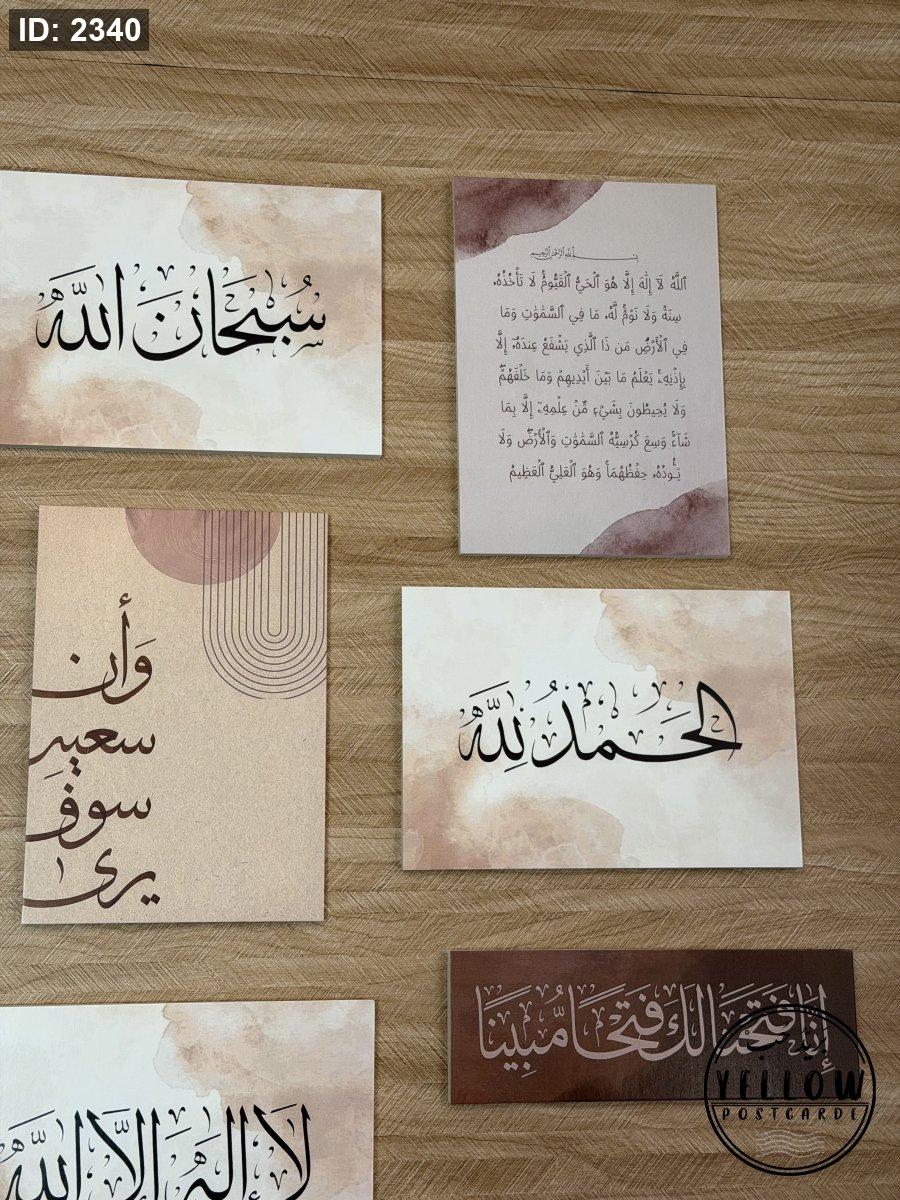 ID: 2340
سُبْحَانَ اللَّهِ
بِسْمِ اللَّهِ الرَّحْمَٰنِ الرَّحِيمِ
ٱللَّهُ لَآ إِلَٰهَ إِلَّا هُوَ ٱلْحَيُّ ٱلْقَيُّومُ ۚ لَا تَأْخُذُهُۥ
سِنَةٌ وَلَا نَوْمٌ ۚ لَّهُۥ مَا فِي ٱلسَّمَٰوَٰتِ وَمَا
فِي ٱلْأَرْضِ ۗ مَن ذَا ٱلَّذِي يَشْفَعُ عِندَهُۥٓ إِلَّا
بِإِذْنِهِۦ ۚ يَعْلَمُ مَا بَيْنَ أَيْدِيهِمْ وَمَا خَلْفَهُمْ ۖ
وَلَا يُحِيطُونَ بِشَيْءٍ مِّنْ عِلْمِهِۦٓ إِلَّا بِمَا
شَآءَ ۚ وَسِعَ كُرْسِيُّهُ ٱلسَّمَٰوَٰتِ وَٱلْأَرْضَ ۖ وَلَا
يَـُٔودُهُۥ حِفْظُهُمَا ۚ وَهُوَ ٱلْعَلِيُّ ٱلْعَظِيمُ
وَأن
سعيه
سوف
يرى
الحَمدُ لِلَّهِ
إِنَّا فَتَحْنَا لَكَ فَتْحًا مُّبِينًا
لَا إِلَهَ إِلَّا اللَّهُ
YELLOW
POSTCARDE